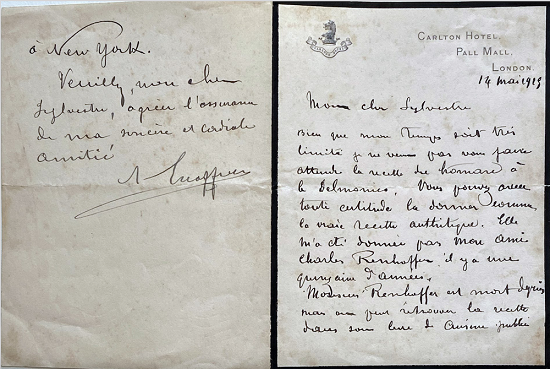 CARLTON HOTEL.
PALL MALL,
LONDON.
14 mai 1913
Mon cher Sylvestre
Bien que mon temps soit très
limité je ne veux pas vous faire
attendre la recette du homard à
la Delmonico. Vous pouvez avec
toute certitude la donner comme
la vraie recette authentique. Elle
m'a été donnée par mon ami
Charles Renhoffer il y a une
quinzaine d'années.
Monsieur Renhoffer est mort depuis
mais on peut retrouver la recette
dans son livre de Cuisine publié
à New York.
Veuillez, mon cher
Sylvestre, agréer l'assurance
de ma sincère et cordiale
amitié
A Escoffier